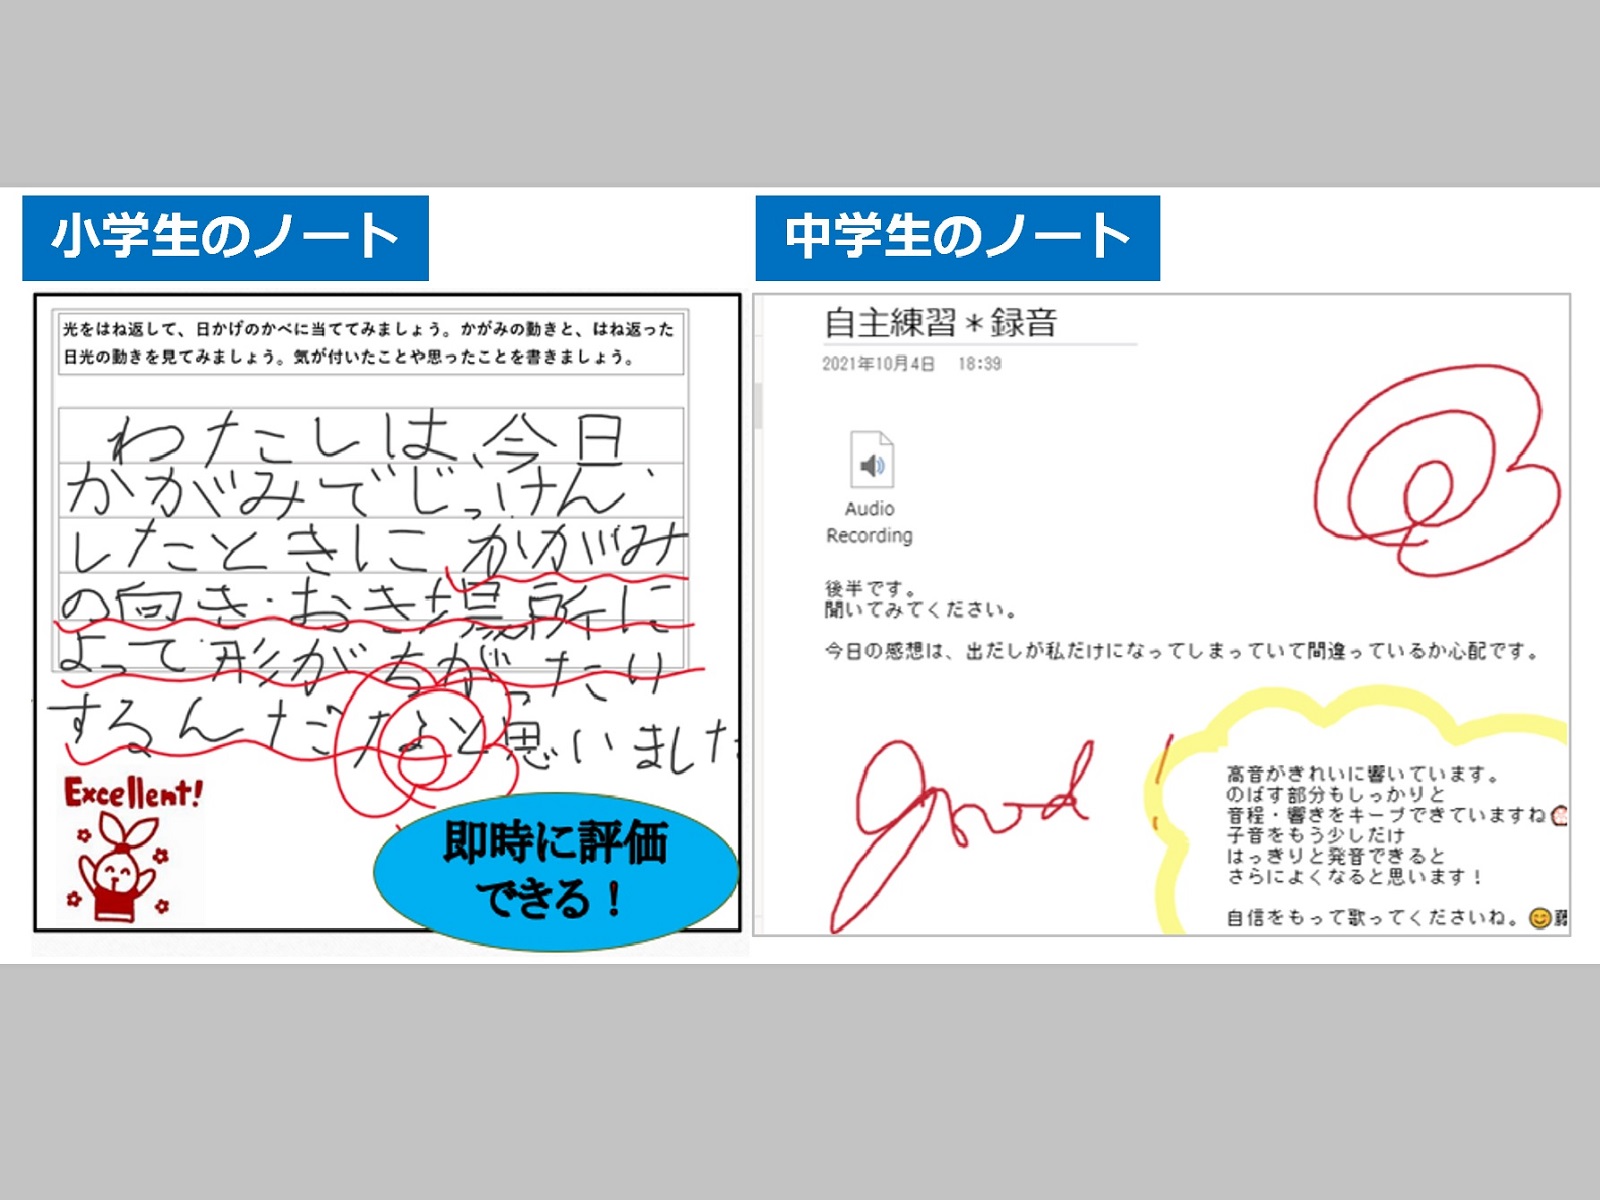 小学生のノート
光をはね返して、日かげのかべに当ててみましょう。かがみの動きと、はね返った
日光の動きを見てみましょう。気が付いたことや思ったことを書きましょう。
わたしは、今日、
かがみでじっけん
したときに、かがみ
の向き・おき場所に
よって形がちがったり
するんだなと思いました
Excellent!
即時に評価
できる！
中学生のノート
自主練習＊録音
2021年10月4日 18:39
Audio
Recording
後半です。
聞いてみてください。
今日の感想は、出だしが私だけになってしまっていて間違っているか心配です。
good
高音がきれいに響いています。
のばす部分もしっかりと
音程・響きをキープできていますね
子音をもう少しだけ
はっきりと発音できると
さらによくなると思います！
自信をもって歌ってくださいね。